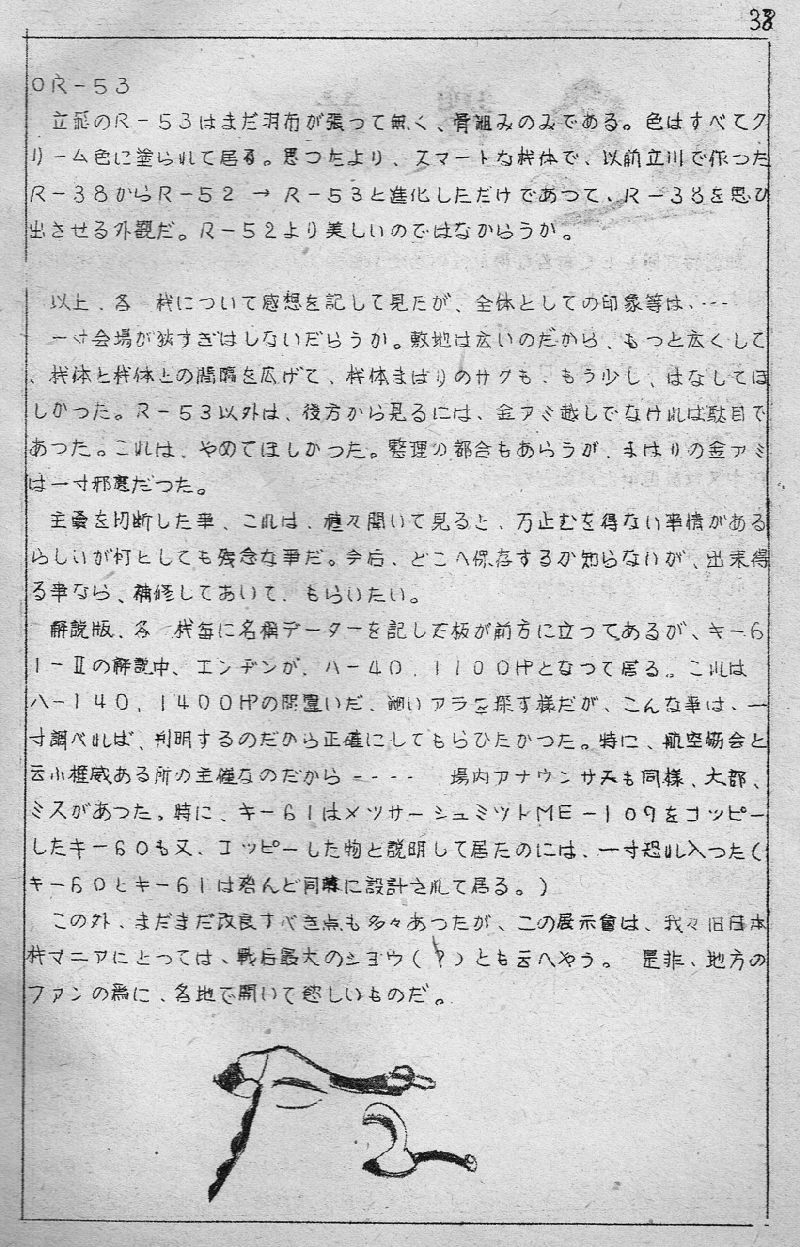 38
○R-53
立飛のR-53はまだ羽布が張って無く、骨組みのみである。色はすべてク
リーム色に塗られて居る。思つたより、スマートな機体で、以前立川で作つた
R-38からR-52 → R-53と進化しただけであつて、R-38を思ひ
出させる外観だ。R-52より美しいのではなからうか。
以上、各機について感想を記して見たが、全体としての印象等は、---
一寸会場が狭すぎはしないだらうか。敷地は広いのだから、もつと広くして
、機体と機体との間隔を広げて、機体まはりのサクも、もう少し、はなしてほ
しかつた。R-53以外は、後方から見るには、金アミ越しでなければ駄目で
あつた。これは、やめてほしかつた。整理の都合もあらうが、まはりの金アミ
は一寸邪魔だつた。
主翼を切断した事、これは、種々聞いて見ると、万止むを得ない事情がある
らしいが何としても残念な事だ。今后、どこへ保存するか知らないが、出来得
る事なら、補修しておいて、もらいたい。
解説版、各機毎に名稱データーを記して板が前方に立つてあるが、キー6
1-Ⅱの解説中、エンヂンが、ハー40、1100HPとなつて居る。これは
ハー140、1400HPの間違いだ、細いアラを探す様だが、こんな事は、一
寸調べれば、判明するのだから正確にしてもらひたかつた。特に、航空協会と
云ふ権威ある所の主催なのだから---- 場内アナウンサーも同様、大部、
ミスがあつた。特に、キー61はメツサーシュミツトME-109をコッピー
したキー60も又、コッピーした物と説明して居たのには、一寸恐れ入つた(
キー60とキー61は殆んど同時に設計されて居る。)
この外、まだまだ改良すべき点も多々あつたが、この展示會は、我々旧日本
機マニアにとつては、戦后最大のショウ(?)とも云へやう。 是非、地方の
ファンの為に、各地で開いて欲しいものだ。